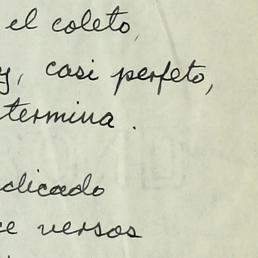 el coleto,
y, casi perfeto,
termina.
dicado
ce versos